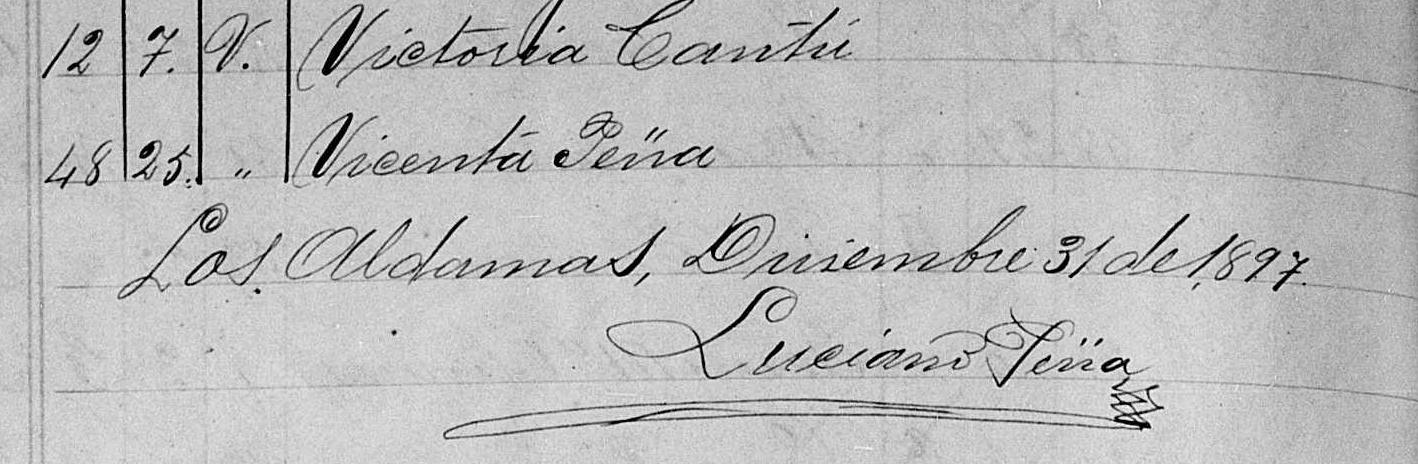 12 7. V. Victoria Cantú
48 25. " Vicenta Peña
Los Aldamas, Diciembre 31 de 1897.
Luciano Peña